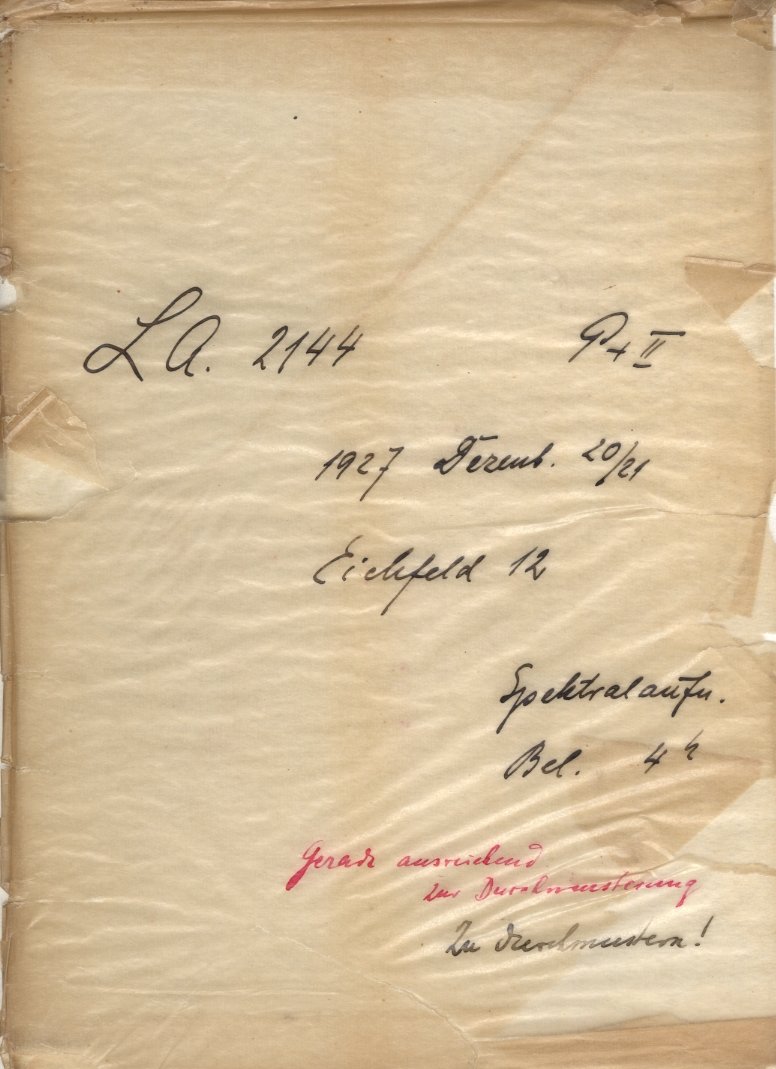 LA. 2144 P+II
1927 Dezemb. 20/21
Eichfeld 12
Spektralaufn.
Bel. 4h
Gerade ausreichend
zur Durchmusterung
Zu durchmustern!